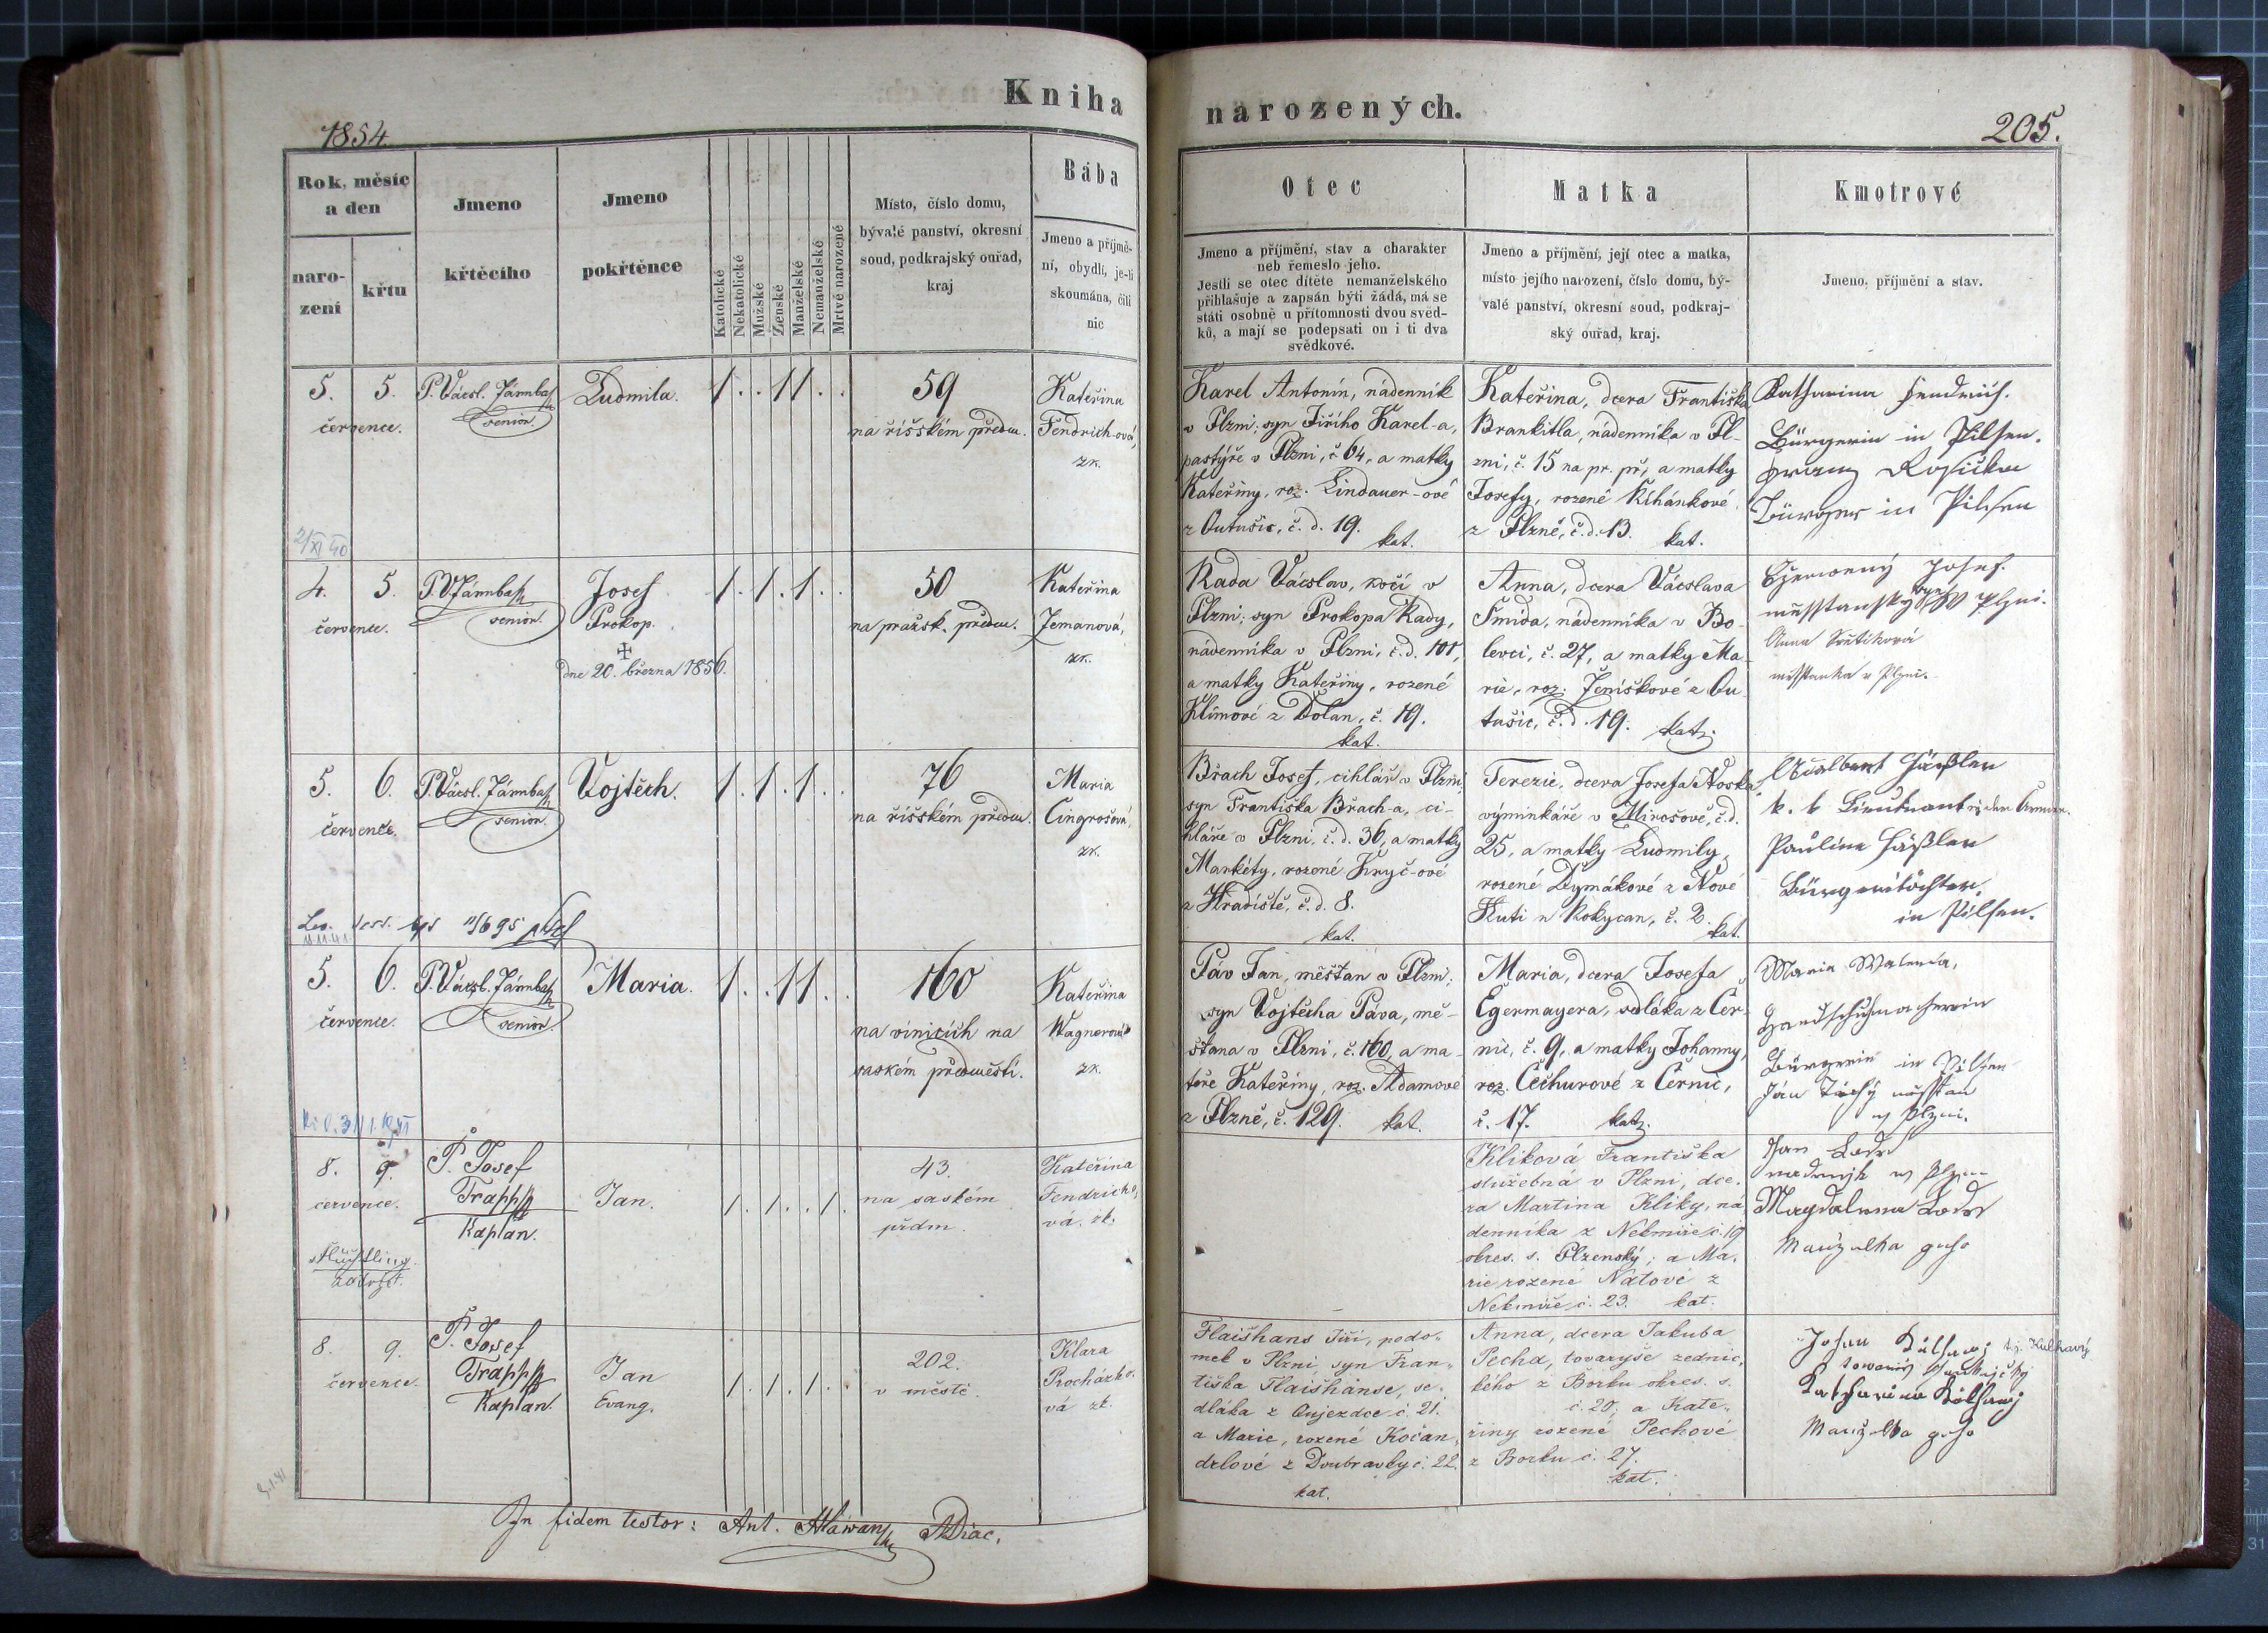 Kniha
narozených.
1854.
205.
Rok, měsíc
a den
naro-
zení
křtu
Jmeno
křtěcího
Jmeno
pokřtěnce
Katolické
Nekatolické
Mužské
Ženské
Manželské
Nemanželské
Mrtvě narozené
Místo, číslo domu,
bývalé panství, okresní
soud, podkrajský ouřad,
kraj
Bába
Jmeno a příjmě-
ní, obydlí, je-li
skoumána, čili
nic
Otec
Jmeno a příjmění, stav a charakter
neb řemeslo jeho.
Jestli se otec dítěte nemanželského
přihlašuje a zapsán býti žádá, má se
státi osobně u přítomnosti dvou svěd-
ků, a mají se podepsati on i ti dva
svědkové.
Matka
Jmeno a příjmění, její otec a matka,
místo jejího narození, číslo domu, bý-
valé panství, okresní soud, podkraj-
ský ouřad, kraj.
Kmotrové
Jmeno, příjmění a stav.
5. 5.
července.
2/XI 40
P. Václ.
senior.
Ludmila.
1 . . 1 1 . .
59
na říšském předm.
Kateřina
Fendrich-ová,
zk.
Karel Antonín, nádenník
v Plzni; syn Jiřího Karel-a,
pastýře v Plzni, č 64, a matky
Kateřiny, roz. Lindauer-ové
z Outušic, č. d. 19.
kat.
Kateřina, dcera Františka
Brankitla, nádenníka v Pl-
zni, č. 15 na pr. př, a matky
Josefy, rozené Říhánkové
z Plzně, č. d. 13.
kat.
Katharina Fendrich.
Bürgerin in Pilsen.
Franz
Bürger in Pilsen
4. 5.
července.
P. V.
senior.
Josef
Prokop.
dne 20. března 1856.
1 . 1 . 1 . .
50
na pražsk. předm.
Kateřina
Zemanová,
zk.
Kada Václav, kočí v
Plzni; syn Prokopa Kady,
nádenníka v Plzni, č. d. 101,
a matky Kateřiny, rozené
Klímové z Dolan, č. 19.
kat.
Anna, dcera Václava
Šmída, nádenníka v Bo-
levci, č. 27, a matky Ma-
rie, roz. Jeníškové z Ou-
tušic, č. d. 19. kat.
Josef.
syn
v Plzni.
Anna
v Plzni.
5. 6.
července.
P. Václ.
senior.
Vojtěch.
1 . 1 . 1 . .
76
na říšském předm.
Maria
Cingrošová,
zk.
Břach Josef, cihlář v Plzni,
syn Františka Břach-a, ci-
hláře v Plzni, č. d. 36, a matky
Markéty, rozené Kryč-ové
z Hradiště, č. d. 8.
kat.
Terezie, dcera Josefa Noska,
výminkáře v Mirošově, č. d.
25, a matky Ludmily,
rozené Dymákové z Nové
Huti u Rokycan, č. 2.
kat.
Adalbert Häßler
k. k. Lieutnant in der Armee.
Pauline Häßler
Bürgerstochter,
in Pilsen.
5. 6.
července.
P. Václ.
senior
Maria.
1 . . 1 1 . .
160
na vinicích na
saském předměstí.
Kateřina
Wagnerová
zk.
Páv Jan, měšťan v Plzni;
syn Vojtěcha Páva, mě-
šťana v Plzni, č. 160, a ma-
teře Kateřiny, roz. Adamové
z Plzně, č. 129. kat.
Maria, dcera Josefa
Egermayera, sedláka z Čer-
nic, č. 9, a matky Johanny,
roz. Čechurové z Černic,
č. 17. kat.
Maria Walenta,
Handschuhmacherin
Bürgerin in Pilsen
Ján Tichý
w Plzni.
8. 9.
července.
P. Josef
Kaplan.
Jan.
1 . 1 . . 1 .
43.
na saském
přdm.
Kateřina
Fendricho-
vá. zk.
Kliková Františka
služebná v Plzni, dce-
ra Martina Kliky, ná-
denníka z Nekmíře č. 19
okres. s. Plzenský; a Ma-
rie rozené Nátové z
Nekmíře č. 23. kat.
Jan
w Plzni
Magdalena
8. 9.
července.
P. Josef
Kaplan.
Jan
Evang.
1 . 1 . 1 . .
202.
v městě.
Klara
Procházko-
vá zk.
Flaišhans Jiří, podo-
mek v Plzni, syn Fran-
tiška Flaišhanse, se-
dláka z Oujezdce č. 21.
a Marie, rozené Kočan-
drlové z Doubravky č. 22.
kat.
Anna, dcera Jakuba
Pecha, tovaryše zednic-
kého z Borku okres. s.
č. 20; a Kate-
řiny rozené Pechové
z Borku č. 27.
kat.
Johan
tj. Kulhavý
Katharina
In fidem testor: Ant.